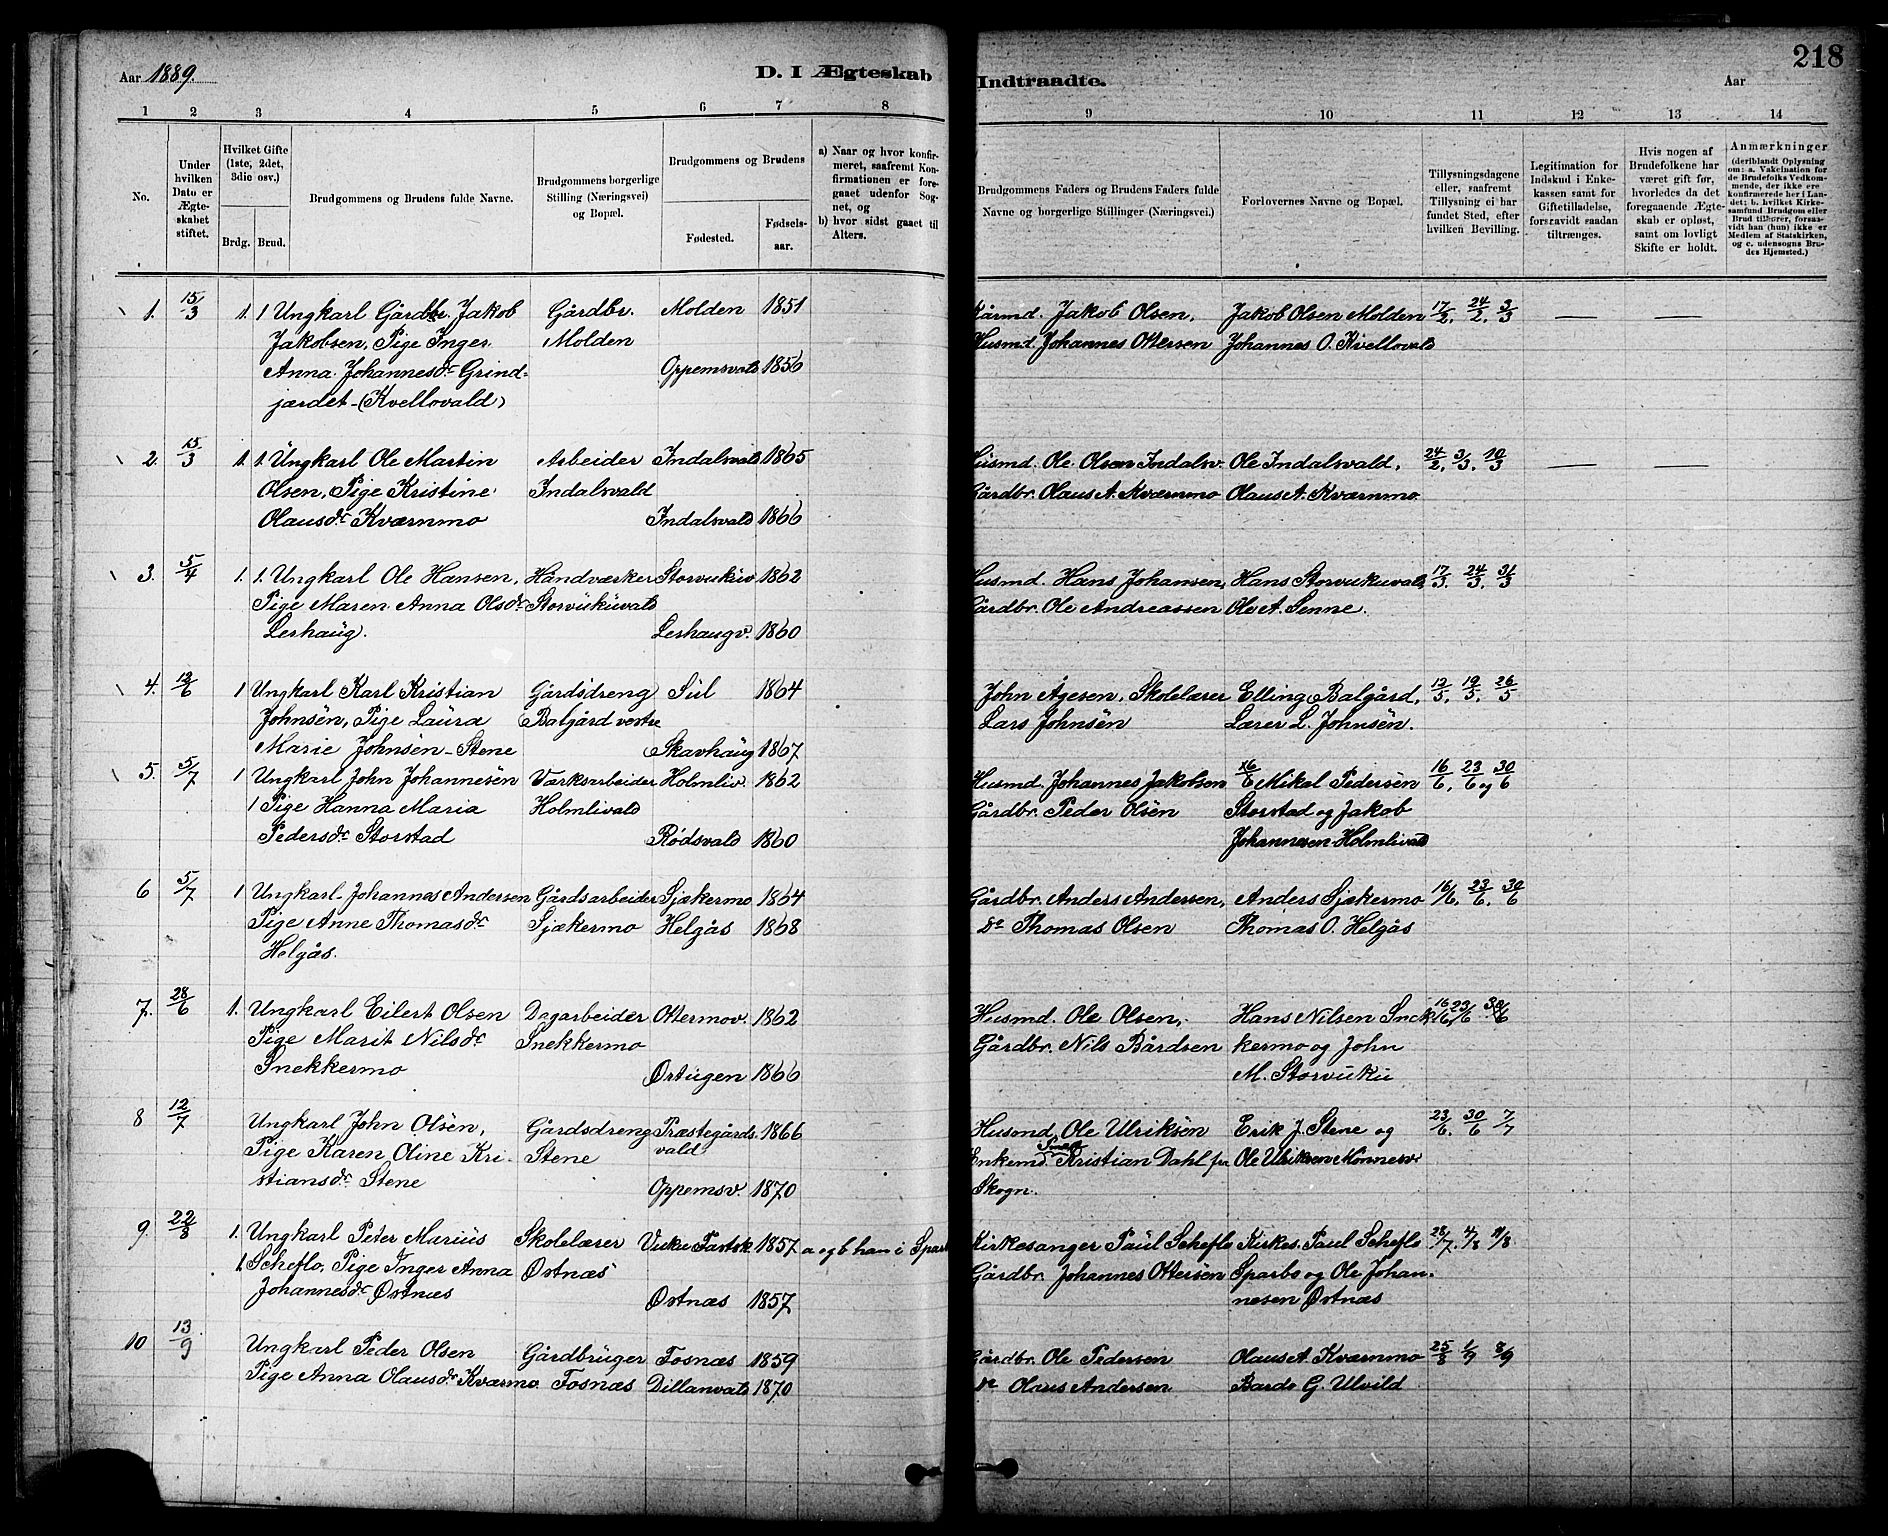 Aar 1889.
D. I Ægteskab
Indtraadte.
Aar
218
1 2 3 4 5 6 7 8
9 10 11 12 13 14
No.
Under hvilken Dato er Ægteskabet stiftet.
Hvilket Gifte (1ste, 2det, 3die osv.)
Brdg. Brud.
Brudgommens og Brudens fulde Navne.
Brudgommens borgerlige Stilling (Næringsvei) og Bopæl.
Brudgommens og Brudens
Fødested.
Fødselsaar.
a) Naar og hvor konfirmeret, saafremt Konfirmationen er foregaaet udenfor Sognet, og
b) hvor sidst gaaet til Alters.
Brudgommens Faders og Brudens Faders fulde Navne og borgerlige Stillinger (Næringsvei.)
Forlovernes Navne og Bopæl.
Tillysningsdagene eller, saafremt Tillysning ei har fundet Sted, efter hvilken Bevilling.
Legitimation for Indskud i Enkekassen samt for Giftetilladelse, forsravidt saadan tiltrænges.
Hvis nogen af Brudefolkene har været gift før, hvorledes da det foregaaende Ægteskab er opløst, samt om lovligt Skifte er holdt.
Anmærkninger
(deriblandt Oplysning om: a. Vakcination for de Brudefolks Vedkommende, der ikke ere konfirmerede her i Landet; b. hvilket Kirkesamfund Brudgom eller Brud tilhører, forsavidt han (hun) ikke er Medlem af Statskirken, og c. udensogns Brudes Hjemsted.)
1. 15/3 1. 1 Ungkarl Gårdbr. Jakob Gårdbr. Molden 1851 Kårmd. Jakob Olsen, Jakob Olsen Molden 17/2, 24/2, 3/3 — —
Jakobsen, Pige Inger Molden Husmd. Johannes Ottersen Johannes O. Kvellovald
Anna Johannesdr Grind- Oppemsvald 1856
jærdet-(Kvellovald)
2. 15/3 1. 1. Ungkarl Ole Martin Arbeider Indalsvald 1865 Husmd. Ole Olsen Indalsv. Ole Indalsvald, 24/2, 3/3, 10/3 — —
Olsen, Pige Kristine Indalsvald Gårdbr. Olaus A. Kværnmo Olaus A. Kværnmo
Olausdr Kværnmo Indalsvald 1866
3. 5/4 1. 1. Ungkarl Ole Hansen, Håndværker Storvukuv 1862 Husmd. Hans Johansen, Hans Storvukuvald, 17/3, 24/3, 31/3
Pige Maren Anna Olsdr Storvukuvald Gårdbr. Ole Andreassen Ole A. Senne.
Leshaug. Leshaugv. 1860
4. 12/6 1 Ungkarl Karl Kristian Gårdsdreng Sul 1864 John Ågesen, Skolelærer Elling Balgård, 12/5, 19/5, 26/5
Johnsen, Pige Laura Balgård vestre Lars Johnsen Lærer L. Johnsen.
Marie Johnsen-Stene Skavhaug 1867
5. 5/7 1 Ungkarl John Johannesen Værksarbeider Holmliv. 1862 Husmd. Johannes Jakobsen Mikal Pedersen 16/6, 23/6 og 30/6
1 Pige Hanna Maria Holmlivald Gårdbr. Peder Olsen Storstad og Jakob
Pedersdr Storstad Rødsvald 1860 Johannesen Holmlivald
6 5/7 1 Ungkarl Johannes Andersen Gårdsarbeider Sjækermo 1864 Gårdbr. Anders Andersen, Anders Sjækermo 16/6, 23/6, 30/6
Pige Anne Thomasdr Sjækermo Helgås 1868 do Thomas Olsen Thomas O. Helgås
Helgås.
7. 28/6 1. Ungkarl Eilert Olsen Dagarbeider Ottermov. 1862 Husmd. Ole Olsen, Hans Nilsen Snek 16/6, 23/6 30/6
Pige Marit Nilsdr Snekkermo Gårdbr. Nils Bårdsen kermo og John
Snekkermo Ørtugen 1866 M. Storvuku
8 12/7 Ungkarl John Olsen, Gårdsdreng Præstegårds 1866 Husmd. Ole Ulriksen Erik J. Stene og 23/6, 30/6 7/7
Pige Karen Oline Kri- Stene vald Enkemd. Kristian Dahl fra Ole Ulriksen
stiansdr Stene Oppemsv. 1870 Skogn.
9. 22/8 1. Ungkarl Peter Marius Skolelærer 1857 a og b han i Spar Kirkesanger Paul Scheflo Kirkes. Paul Scheflo 28/7, 4/8 11/8
1. Scheflo, Pige Inger Anna Østnæs Gårdbr. Johannes Ottersen Sparbo og Ole Johan-
Johannesdr Østnæs Østnæs 1857 nesen Østnæs
10 13/9 Ungkarl Peder Olsen Gårdbruger Fosnæs 1859 Gårdbr. Ole Pedersen Olaus A. Kværnmo 25/8 1/9 8/9
Pige Anna Olausdr Kværnmo Fosnæs Dillanvald 1870 do Olaus Andersen Bardo G. Ulvild